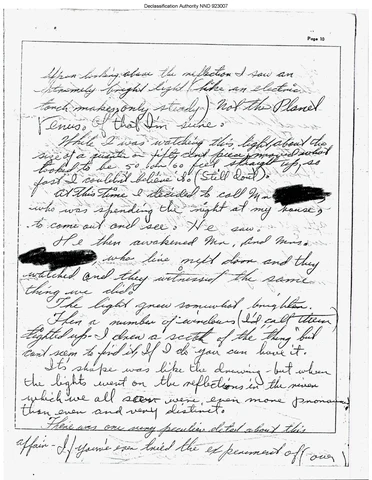 Declassification Authority NND 923007
Page 10
Upon looking above the reflection I saw an
extremely bright light (like an electric
torch makes, only steady) Not the Planet
Venus of that I'm sure.
While I was watching this, light about the
size of a quarter or fifty cent piece, moved
looked to me 50 or so feet
fast I couldn't believe it (still don't).
At this time I decided to call Mr.
who was spending the night at my house,
to come out and see. He saw.
He then awakened Mr. and Mrs.
who live next door and they
watched and they witnessed the same
thing we did.
The light grew somewhat brighter.
Then a number of windows (I'd call them)
lighted up - I drew a sketch of the "thing" but
can't seem to find it, If I do you can have it.
It's shape was like the drawing - but when
the lights went on the reflections in the river
which we all saw were even more pronounced
than even and very distinct.
There was one very peculiar detail about this
affair - If you've ever tried the experiment of (over)